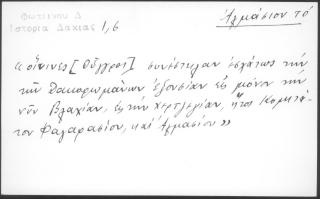 Φωτεινού Δ
Ἱστορία Δακίας 1,6
Ἀλμάσιον τό
«οἵτινες [Οὔγγροι] συνέστειλαν ἐσχάτως τὴν
τῶν Δακορωμάνων ἐξουσίαν εἰς μόνον τὴν
νῦν Βλαχίαν, εἰς τὴν Χερτζεγίαν, ἤτοι Κομητά-
τον Φαγαρασίου, καὶ Ἀλμασίου»